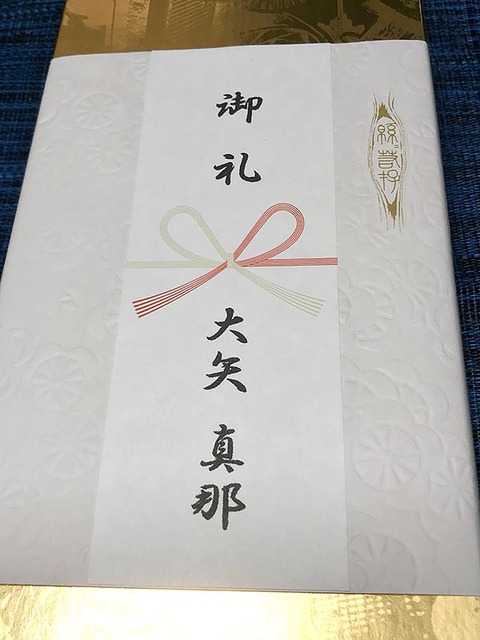 御礼
大矢 真那